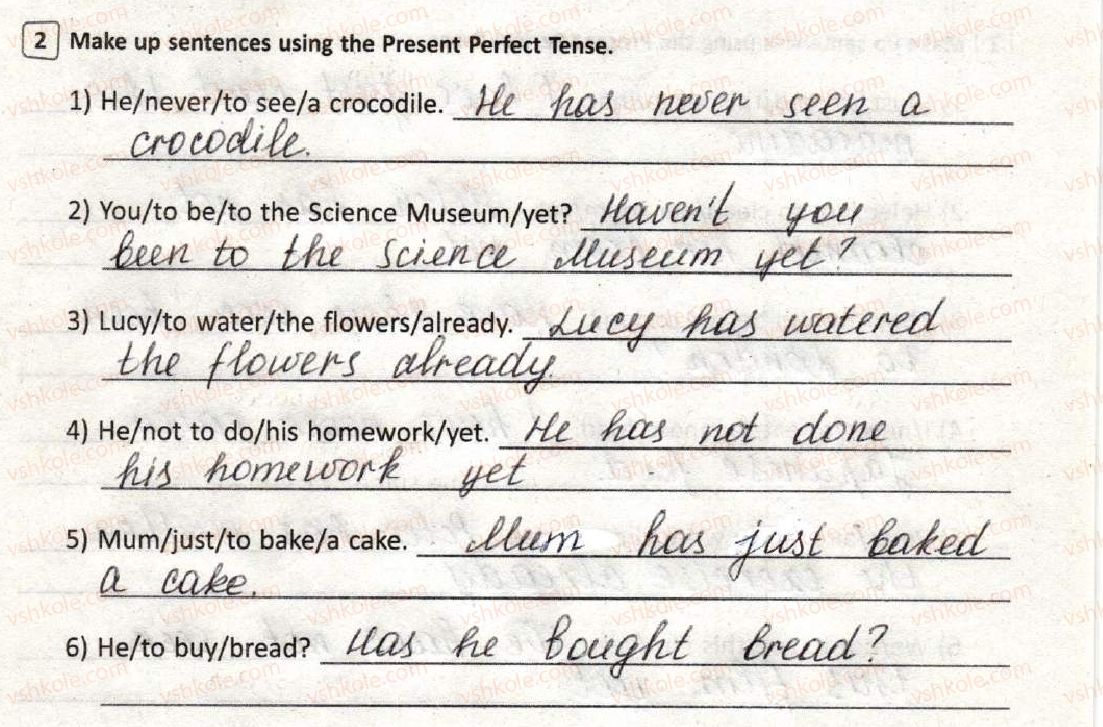 2 Make up sentences using the Present Perfect Tense.
1) He/never/to see/a crocodile. He has never seen a
crocodile.
2) You/to be/to the Science Museum/yet? Haven't you
been to the Science Museum yet?
3) Lucy/to water/the flowers/already. Lucy has watered
the flowers already.
4) He/not to do/his homework/yet. He has not done
his homework yet
5) Mum/just/to bake/a cake. Mum has just baked
a cake.
6) He/to buy/bread? Has he bought bread?
vshkole.com